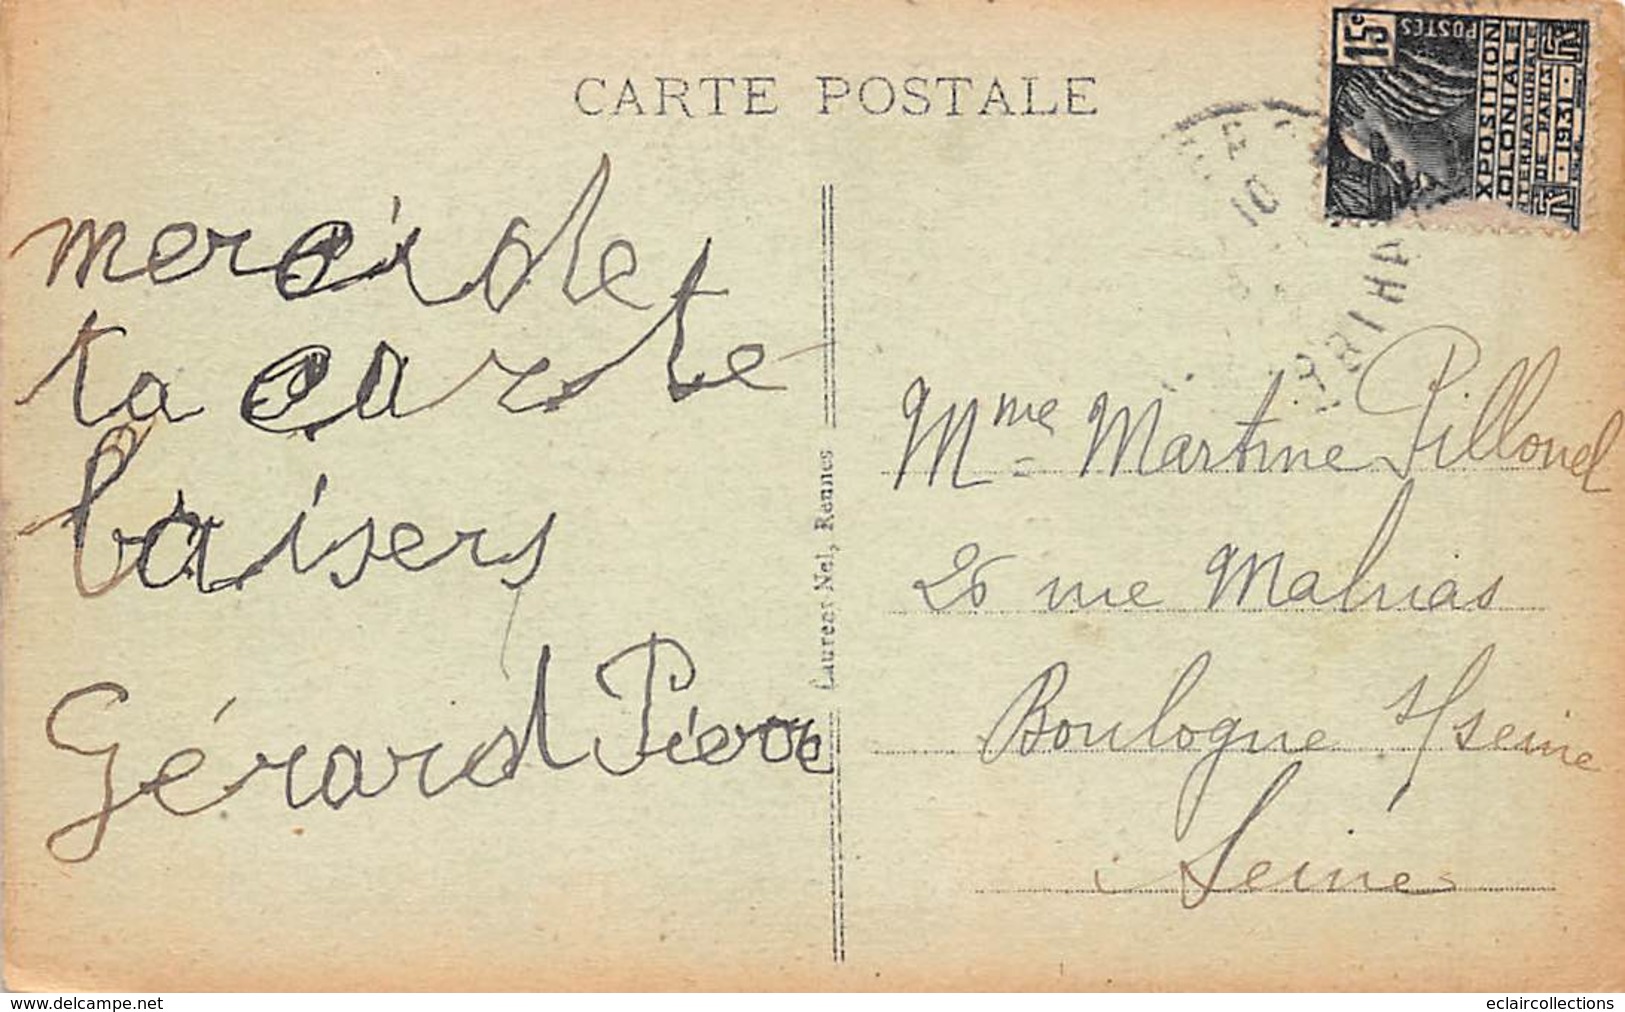 CARTE POSTALE
15c
POSTES
EXPOSITION
COLONIALE
INTERNATIONALE
DE PARIS
1931
10
merci de
ta carte
baisers
Gérard Pierre
Laurent Nel, Rennes
Mme Martine Pillonel
26 rue Mahias
Boulogne s/seine
Seine
www.delcampe.net
eclaircollections